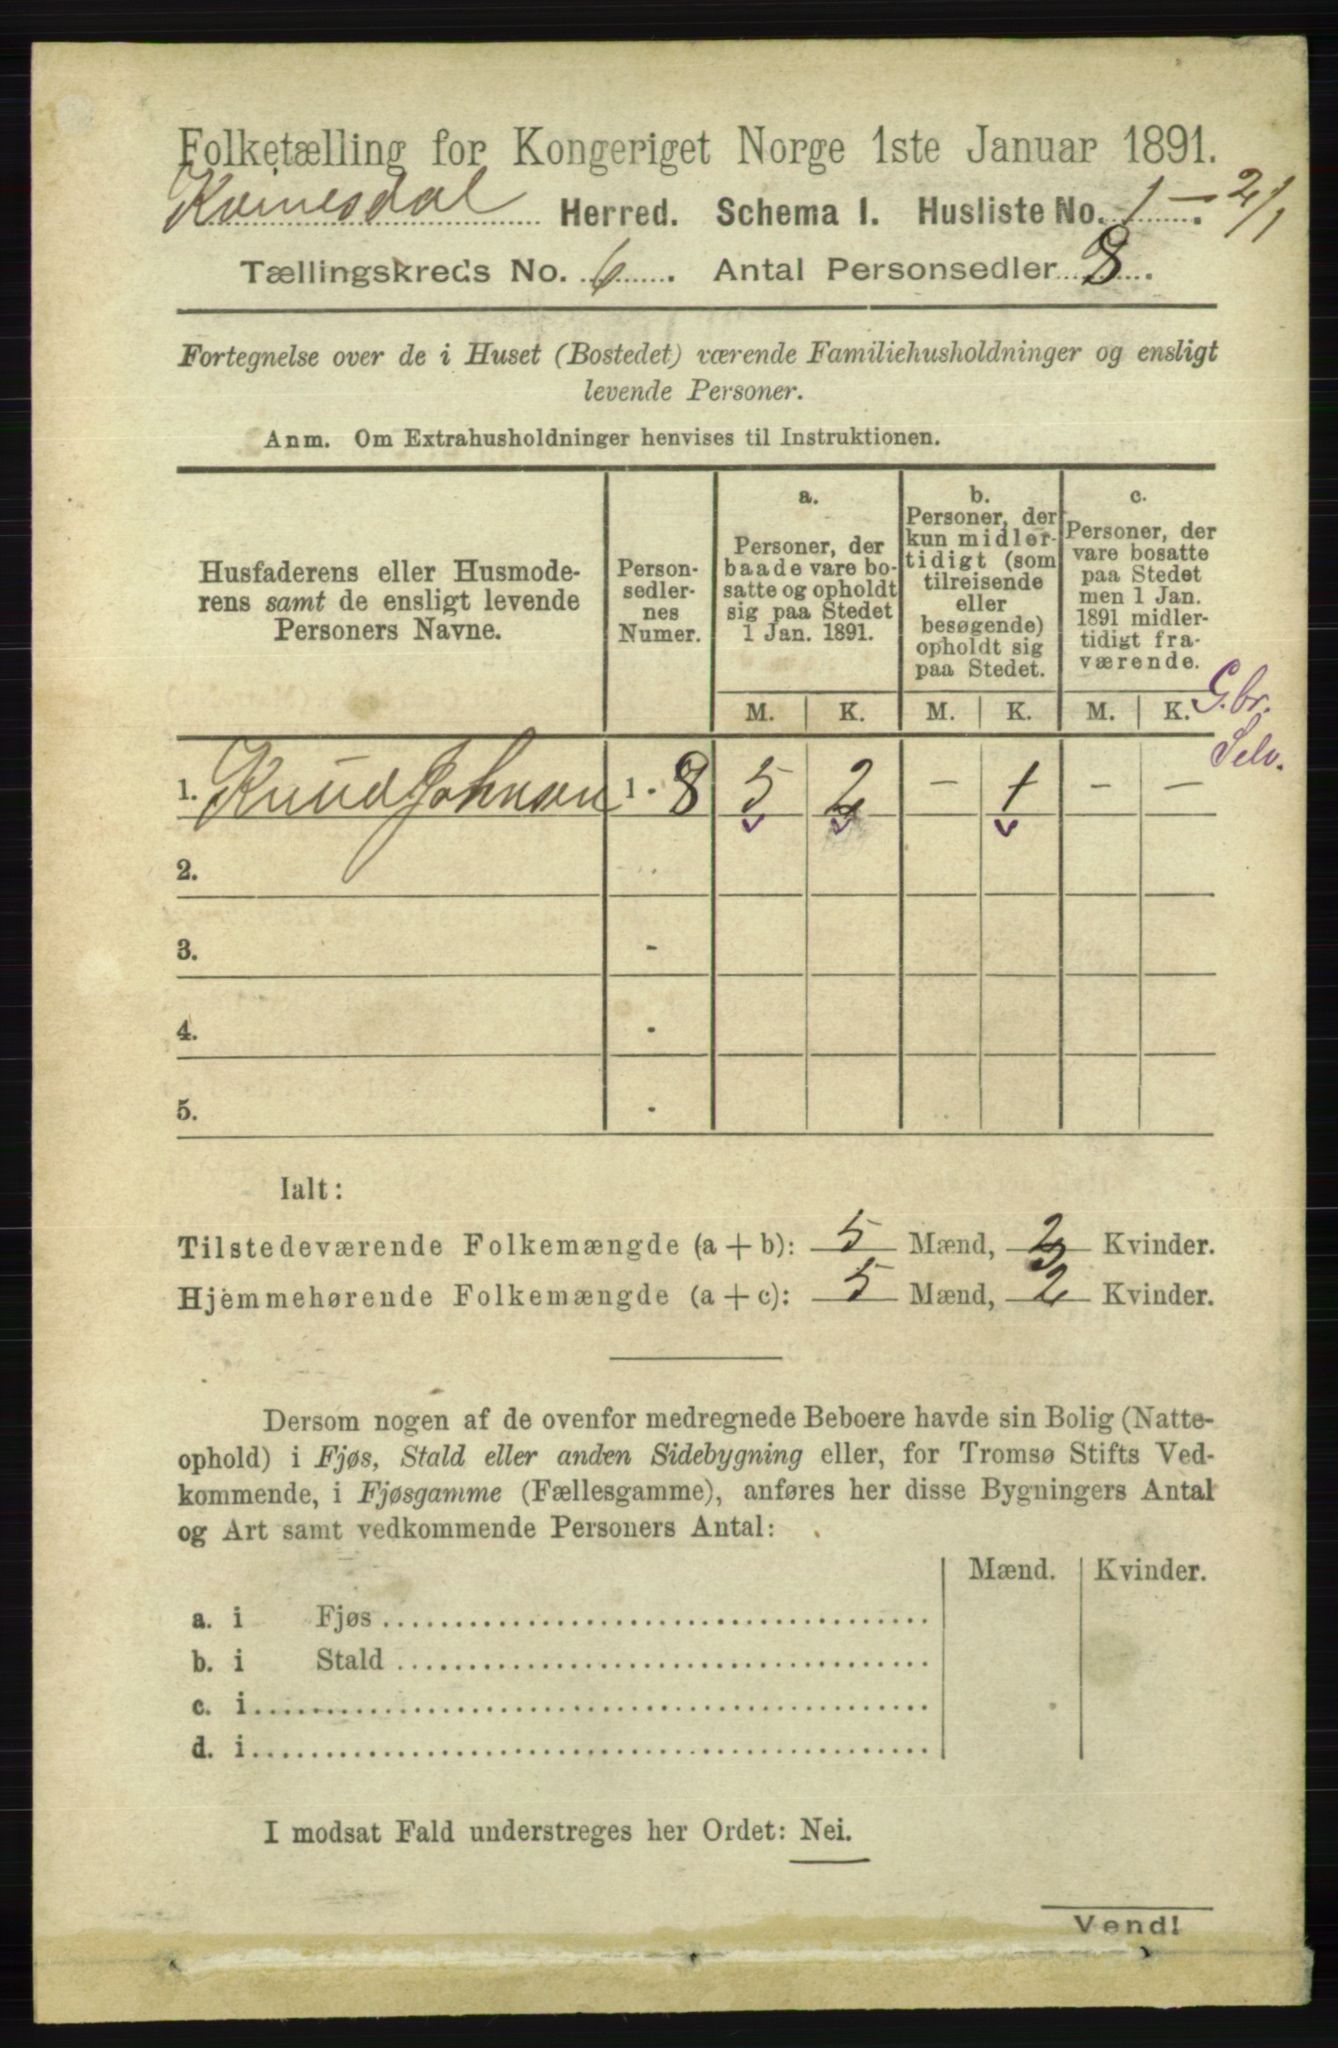 Folketælling for Kongeriget Norge 1ste Januar 1891.
Kvinesdal Herred. Schema I. Husliste No. 1 - 2/1
Tællingskreds No. 6. Antal Personsedler 8.
Fortegnelse over de i Huset (Bostedet) værende Familiehusholdninger og ensligt
levende Personer.
Anm. Om Extrahusholdninger henvises til Instruktionen.
Husfaderens eller Husmode-
rens samt de ensligt levende
Personers Navne.
Person-
sedler-
nes
Numer.
a.
Personer, der
baade vare bo-
satte og opholdt
sig paa Stedet
1 Jan. 1891.
b.
Personer, der
kun midler-
tidigt (som
tilreisende
eller
besøgende)
opholdt sig
paa Stedet.
c.
Personer, der
vare bosatte
paa Stedet
men 1 Jan.
1891 midler-
tidigt fra-
værende.
M. K. M. K. M. K.
G.br.
Selv.
1. Knud Johnsen 1 - 8 5 2 - 1 - -
2.
3. -
4. -
5. -
Ialt:
Tilstedeværende Folkemængde (a + b): 5 Mænd, 3 Kvinder.
Hjemmehørende Folkemængde (a + c): 5 Mænd, 2 Kvinder.
Dersom nogen af de ovenfor medregnede Beboere havde sin Bolig (Natte-
ophold) i Fjøs, Stald eller anden Sidebygning eller, for Tromsø Stifts Ved-
kommende, i Fjøsgamme (Fællesgamme), anføres her disse Bygningers Antal
og Art samt vedkommende Personers Antal:
Mænd. Kvinder.
a. i Fjøs
b. i Stald
c. i
d. i
I modsat Fald understreges her Ordet: Nei.
Vend!